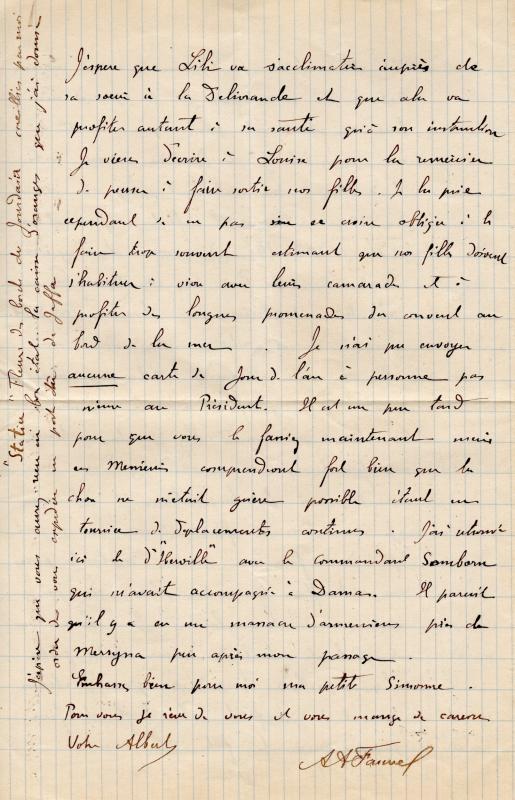 J'espère que Lili va s'acclimater auprès de
sa sœur à la Délivrande et que cela va
profiter autant à sa santé qu'à son instruction
Je viens d'écrire à Louise pour la remercier
de penser à faire sortir nos filles. Je la prie
cependant de ne pas se croire obligée à le
faire trop souvent estimant que nos filles doivent
s'habituer à vivre avec leurs camarades et à
profiter des longues promenades du couvent au
bord de la mer. Je n'ai pu envoyer
aucune carte de Jour de l'an à personne pas
même au Président. Il est un peu tard
pour que vous le fassiez maintenant mais
ces Messieurs comprendront fort bien que la
chose ne m'était guère possible étant en
tournée de déplacements continus. J'ai retrouvé
ici le "d'Iberville" avec le commandant
qui m'avait accompagné à Damas. Il paraît
qu'il y a eu un massacre d'arméniens près de
Mersyna peu après mon passage.
Embrassez bien pour moi ma petite Simonne.
Pour vous je rêve de vous et vous mange de caresses
Votre Albert
AAFauvel
"Statice" Fleur des bords du Jourdain cueillies par moi
J'espère que vous aurez reçu en bon état la caisse d'oranges que j'ai donné
ordre de vous expédier en port dû de Jaffa